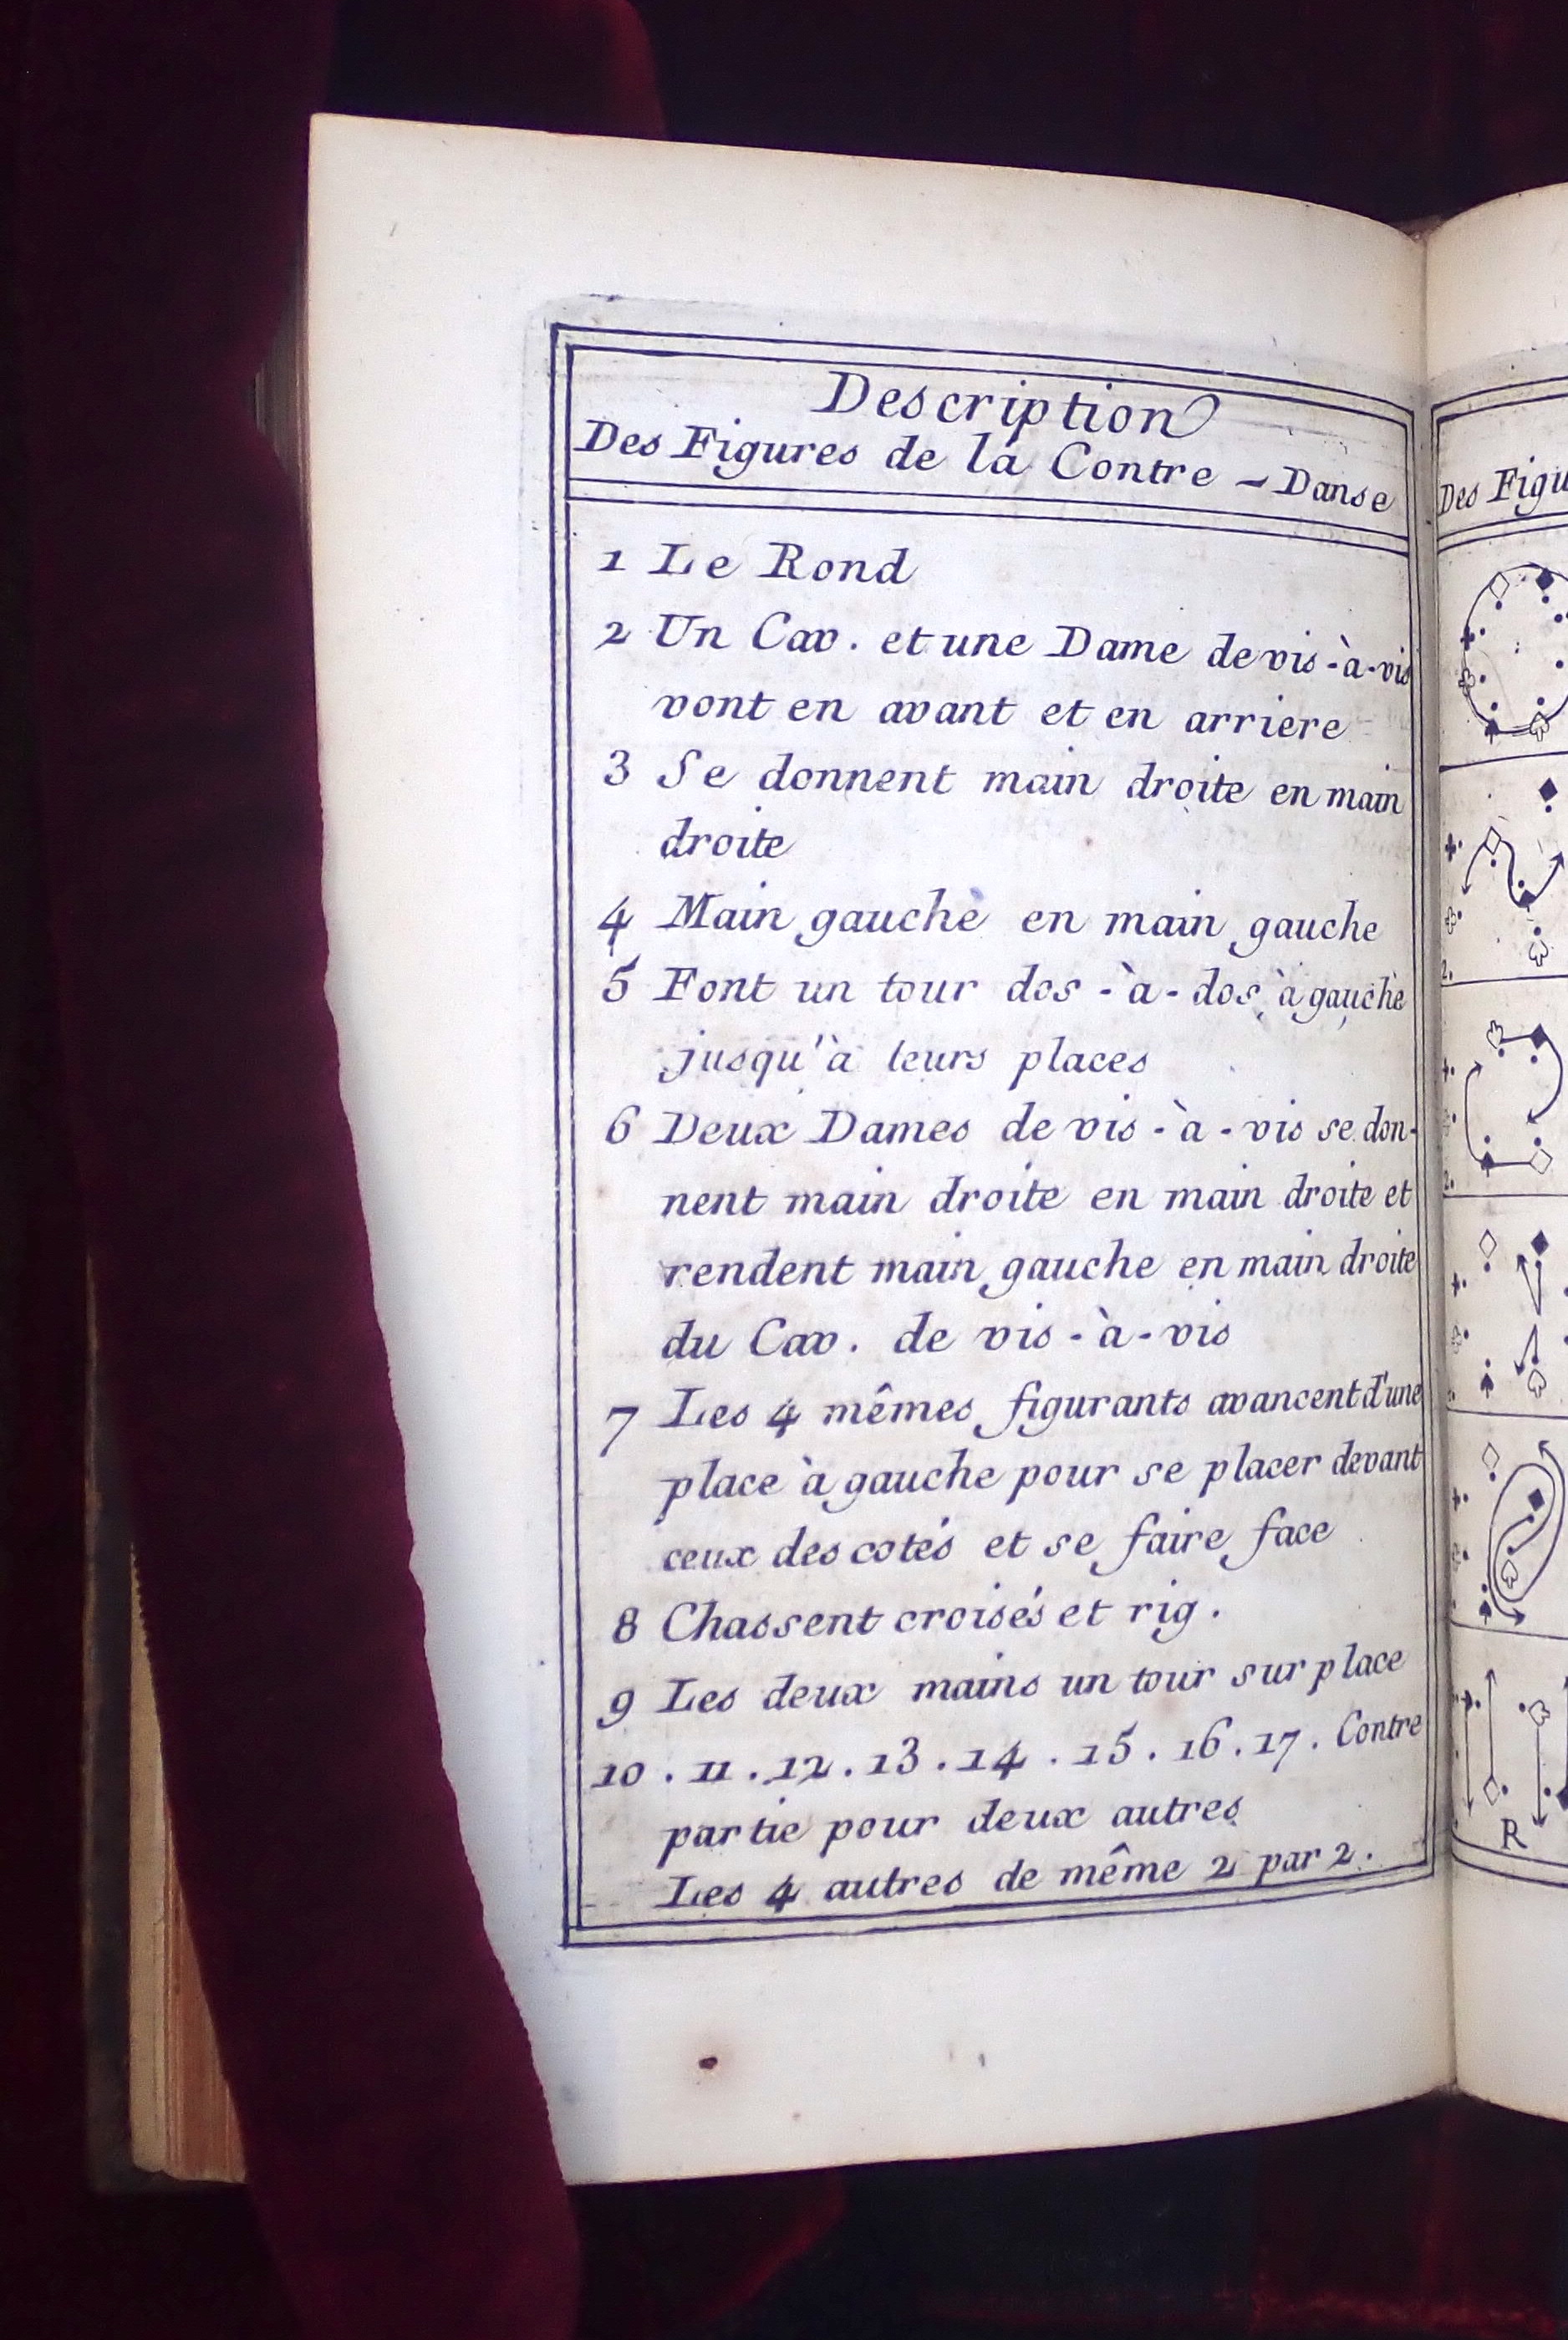 Description
Des Figures de la Contre - Danse
1 Le Rond
2 Un Cav. et une Dame de vis-à-vis
vont en avant et en arriere
3 Se donnent main droite en main
droite
4 Main gauche en main gauche
5 Font un tour dos-à-dos, à gauche
jusqu'à leurs places
6 Deux Dames de vis-à-vis se don-
nent main droite en main droite et
rendent main gauche en main droite
du Cav. de vis-à-vis
7 Les 4 mêmes figurants avancent d'une
place à gauche pour se placer devant
ceux des cotés et se faire face
8 Chassent croisés et rig.
9 Les deux mains un tour sur place
10 . 11 . 12 . 13 . 14 . 15 . 16 . 17 . Contre
partie pour deux autres
Les 4 autres de même 2 par 2.
Des Figu
2.
2.
R